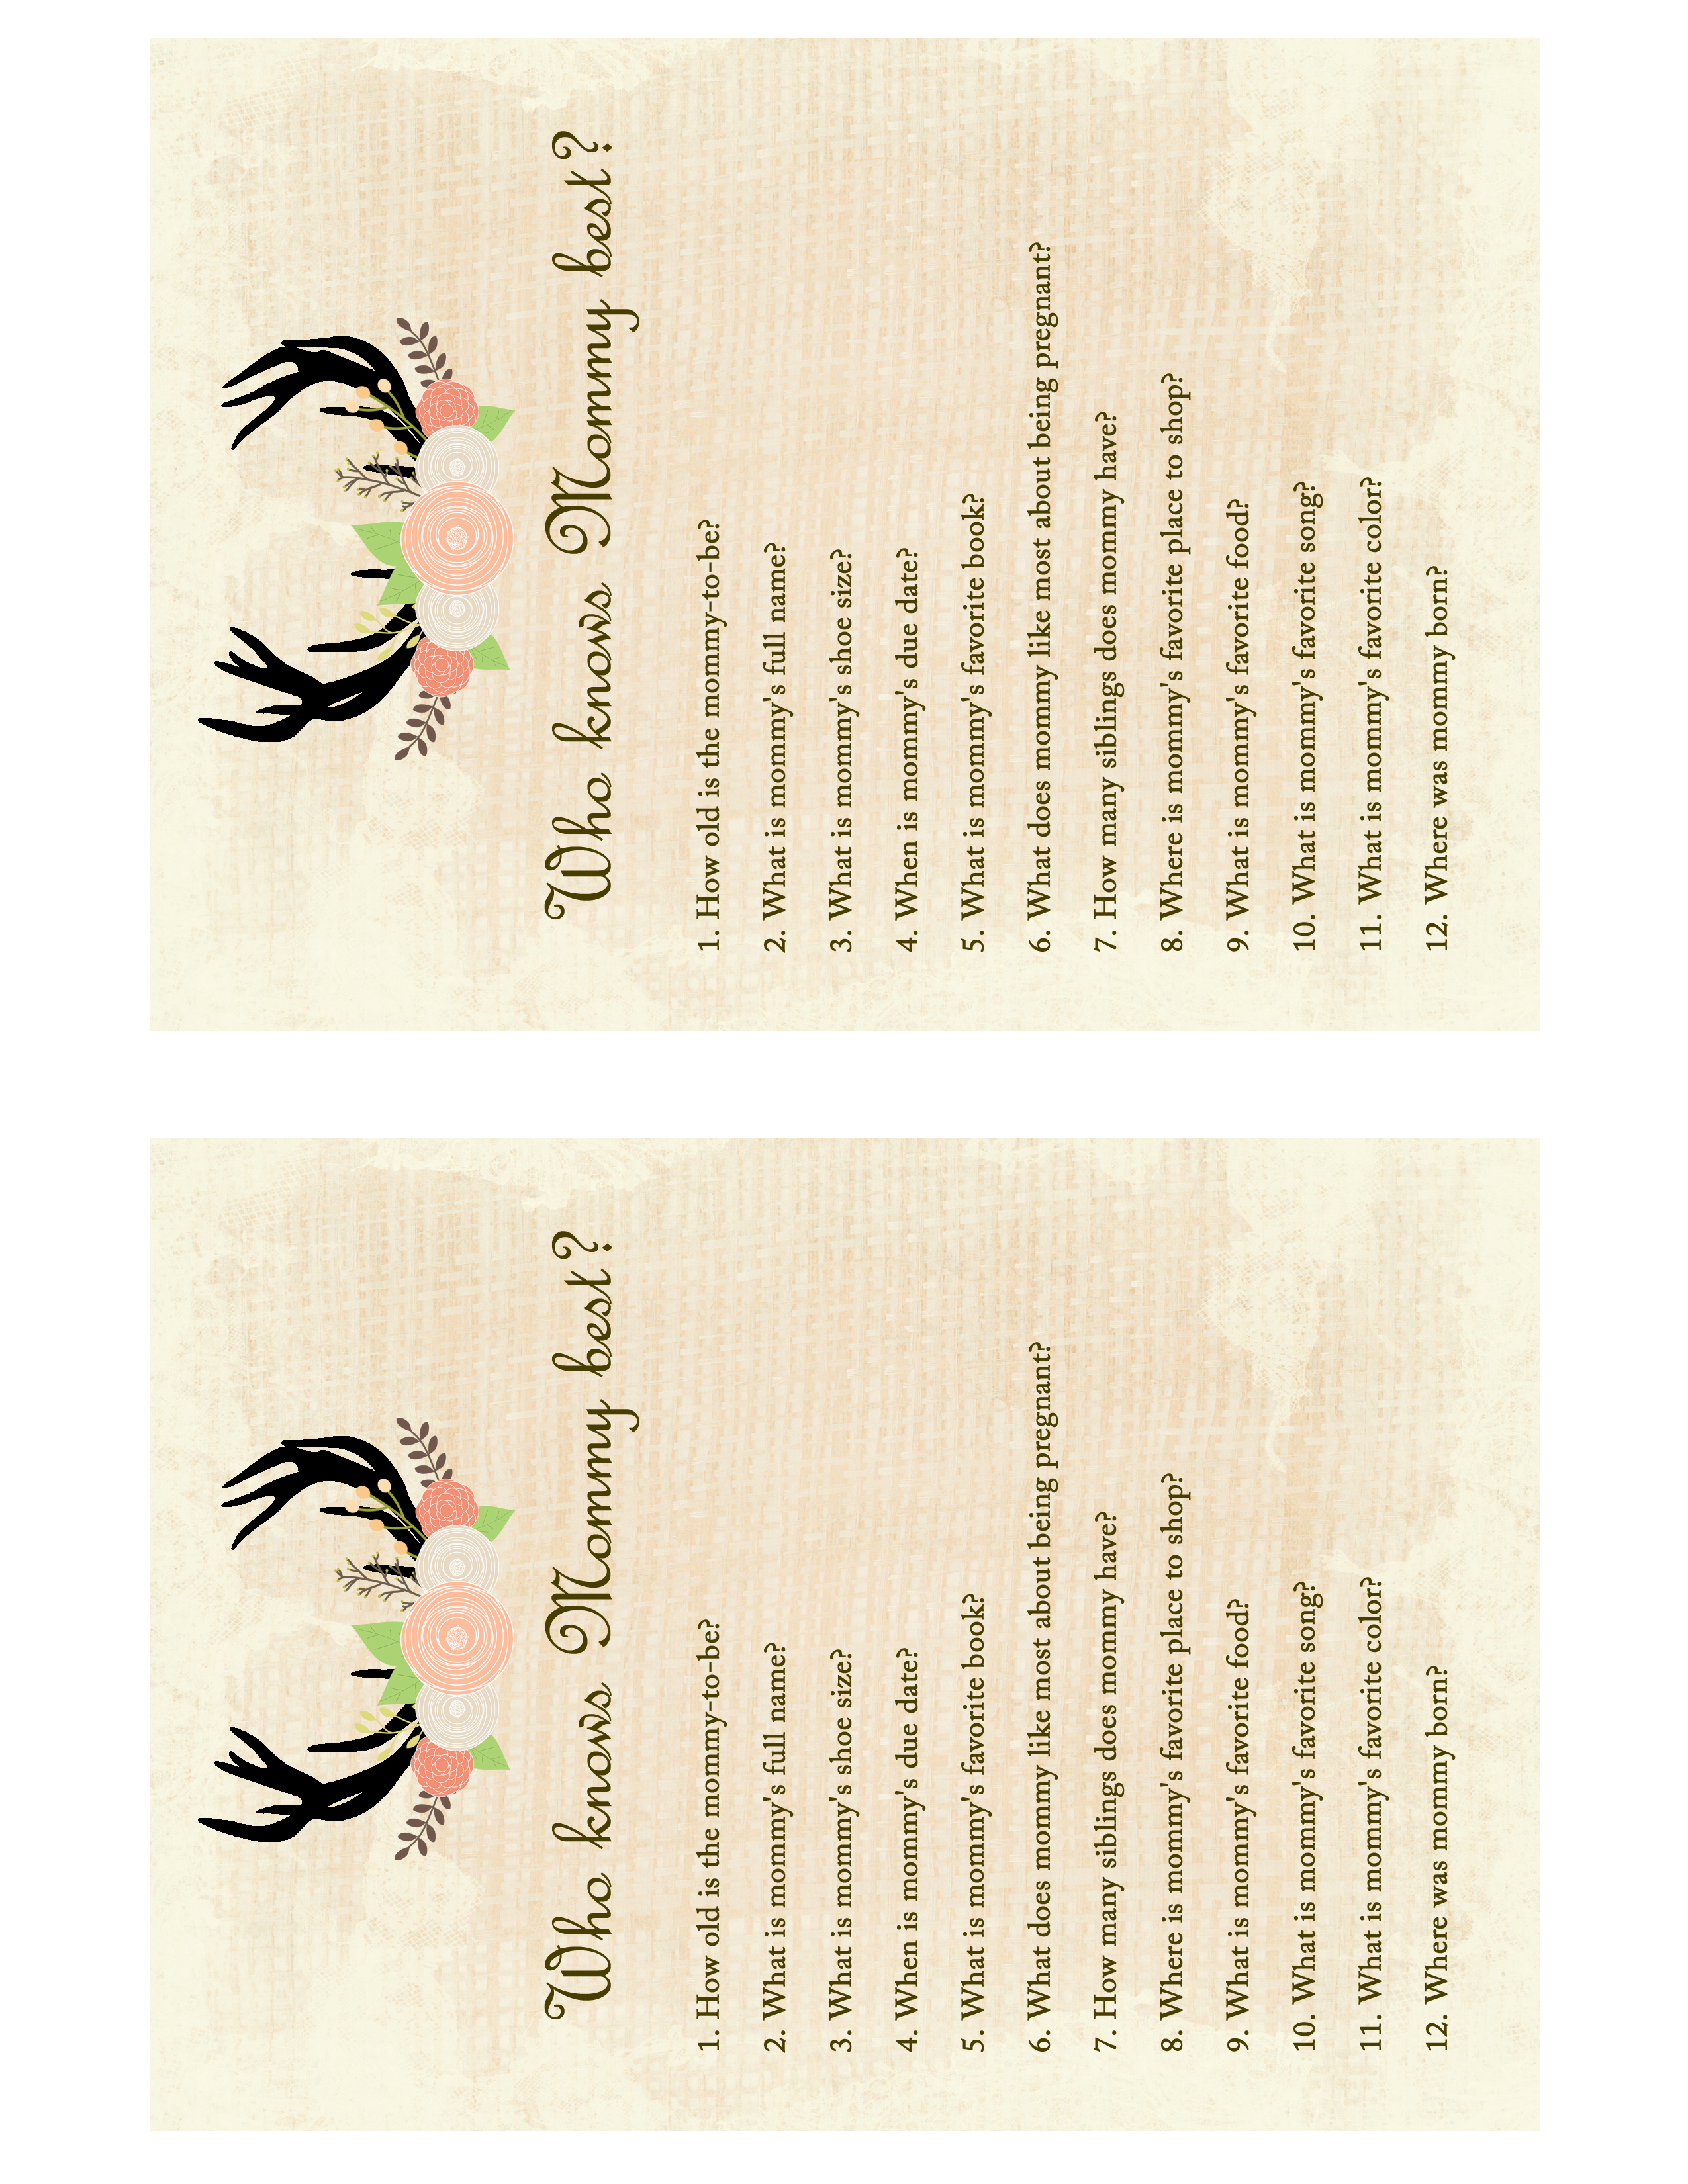 Who knows Mommy best?
1. How old is the mommy-to-be?
2. What is mommy's full name?
3. What is mommy's shoe size?
4. When is mommy's due date?
5. What is mommy's favorite book?
6. What does mommy like most about being pregnant?
7. How many siblings does mommy have?
8. Where is mommy's favorite place to shop?
9. What is mommy's favorite food?
10. What is mommy's favorite song?
11. What is mommy's favorite color?
12. Where was mommy born?
Who knows Mommy best?
1. How old is the mommy-to-be?
2. What is mommy's full name?
3. What is mommy's shoe size?
4. When is mommy's due date?
5. What is mommy's favorite book?
6. What does mommy like most about being pregnant?
7. How many siblings does mommy have?
8. Where is mommy's favorite place to shop?
9. What is mommy's favorite food?
10. What is mommy's favorite song?
11. What is mommy's favorite color?
12. Where was mommy born?